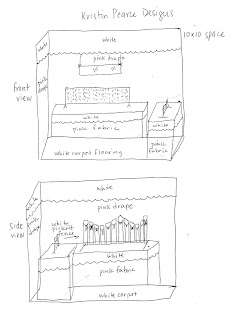 Kristin Pearce Designs
10x10 space
white
white
pink drape
pink drape
front view
white
pink fabric
white
pink fabric
white carpet flooring
white
white
pink drape
side view
white picket fence
white
pink fabric
white carpet